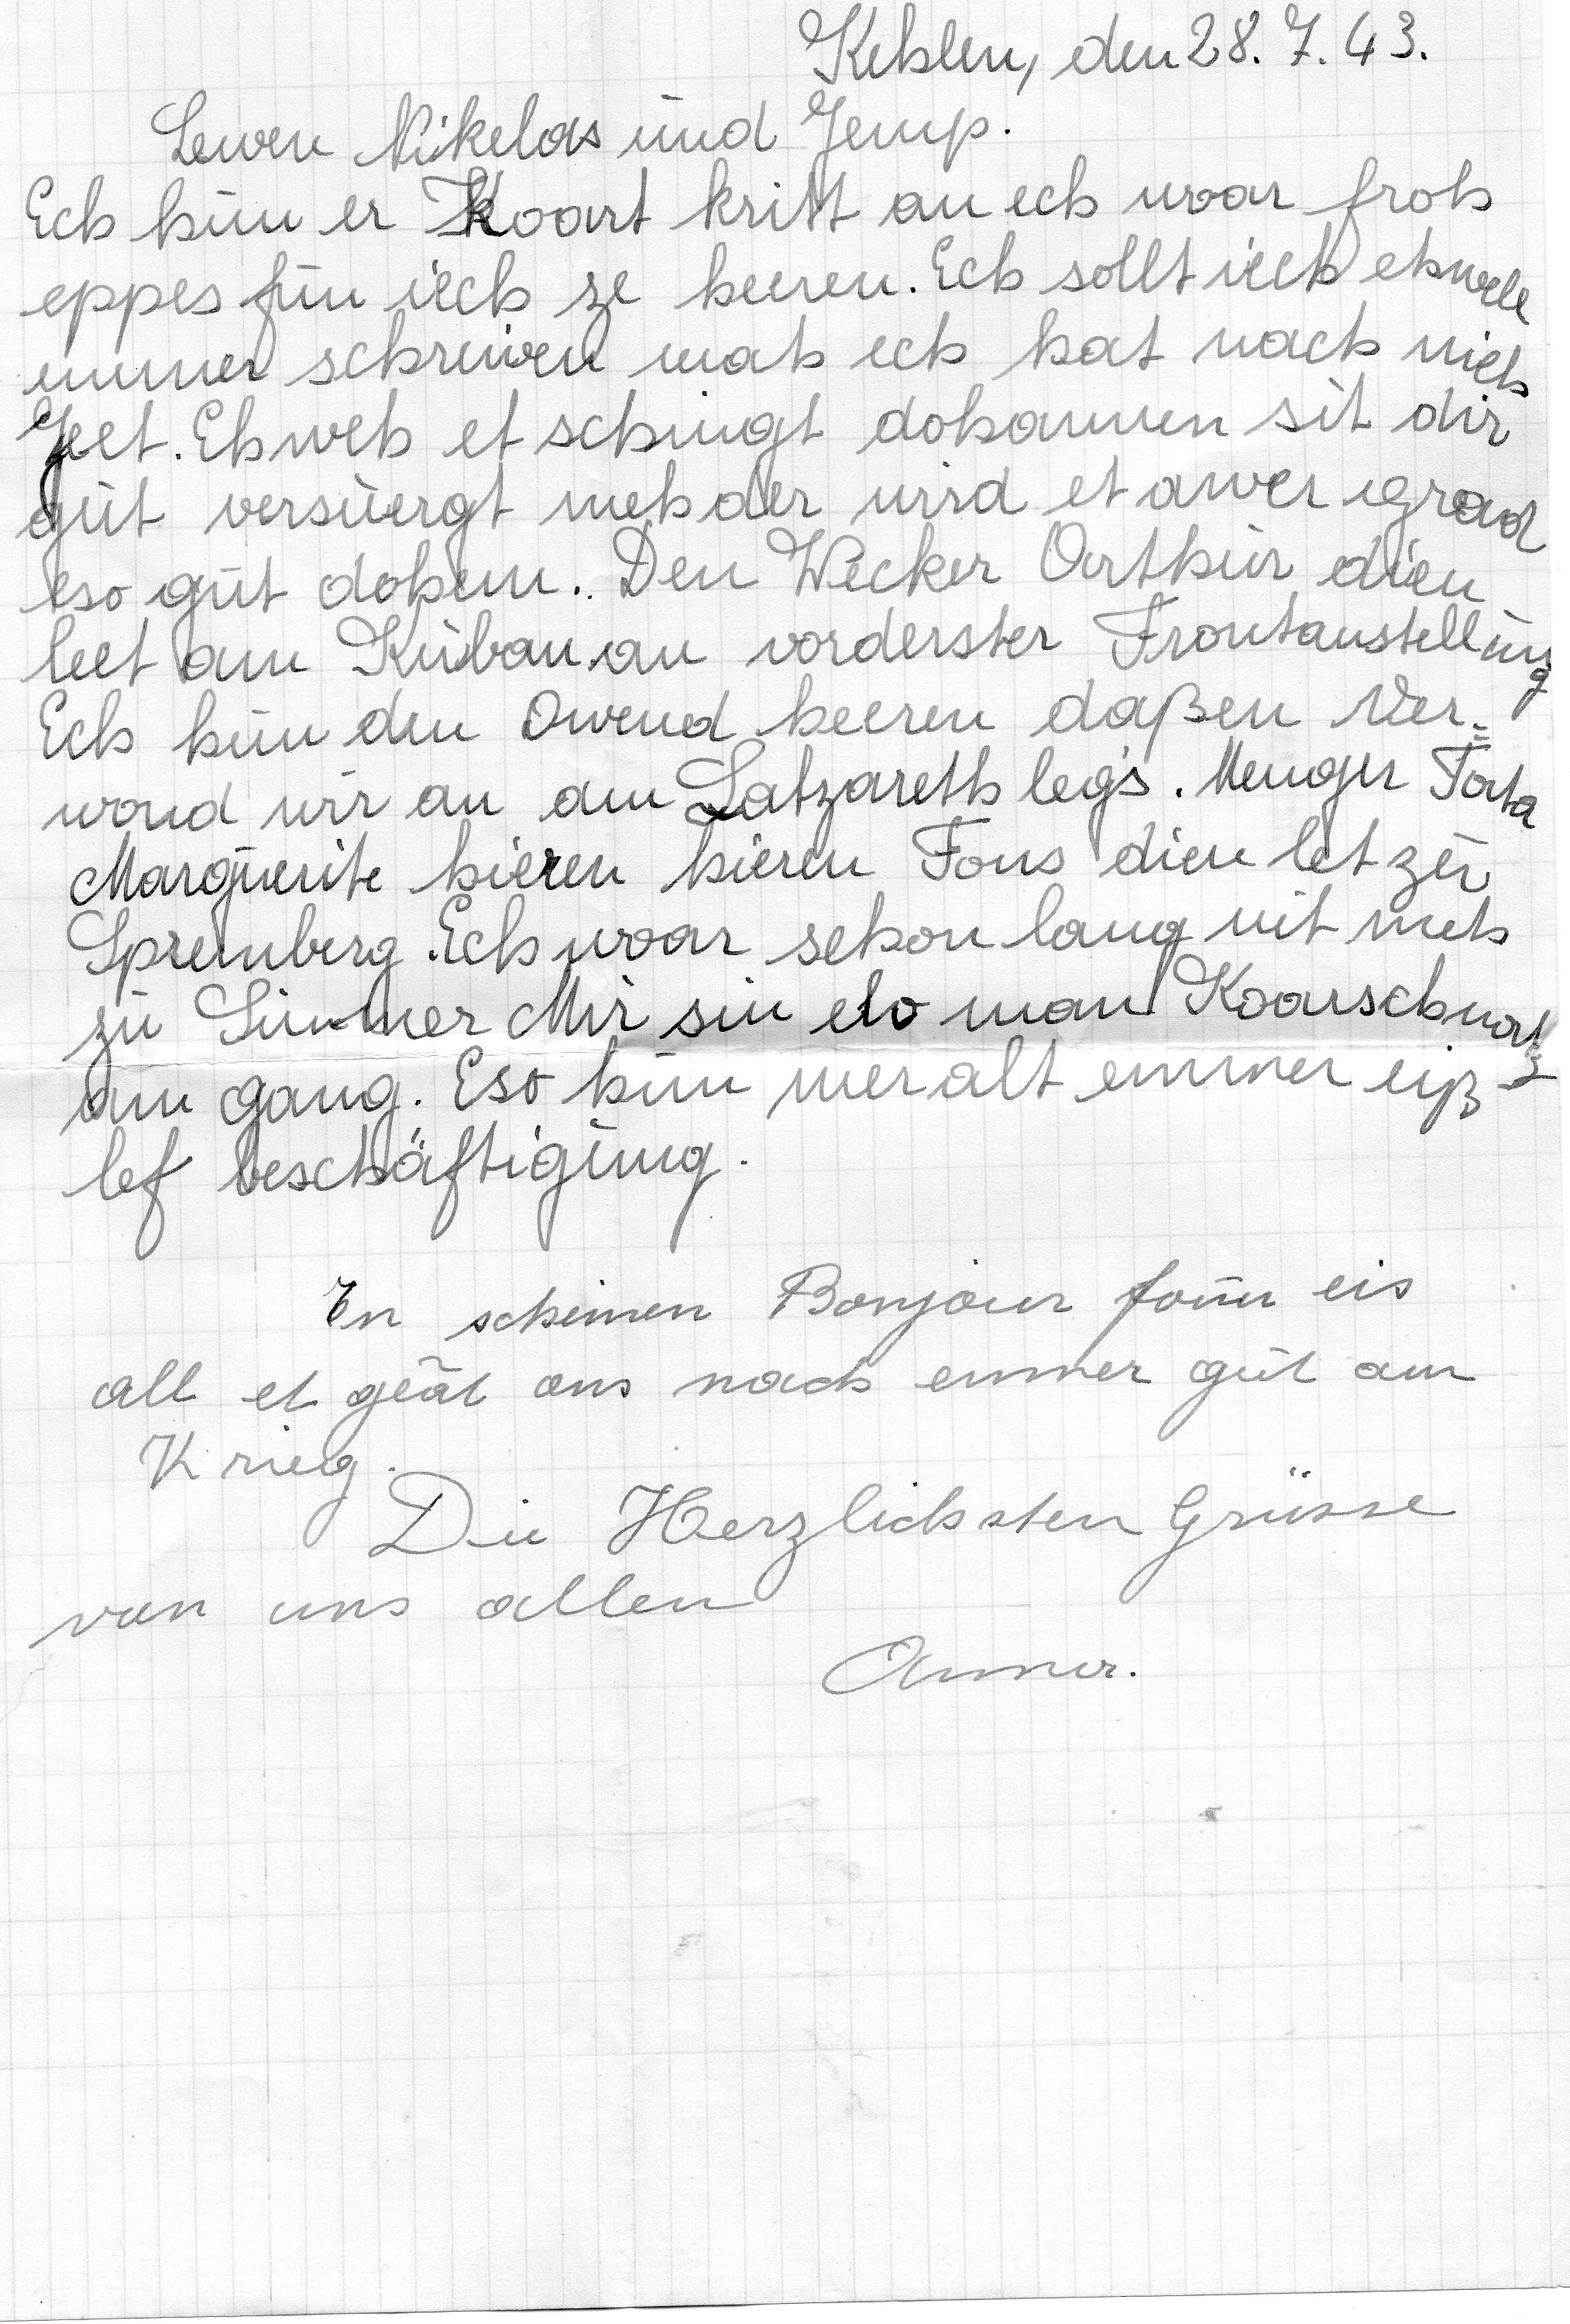 Kehlen, den 28. 7. 43.
Lewen Nikelas und Jemp.
Ech hun er Koart kritt an ech woar froh
eppes fun iech ze heeren. Ech sollt iech ehwele
ummer schreiwen mah ech hat nach nich
Zeet. Ehweh et schingt dohannen sit dir
gut versuergt meh der wird et awer grad
eso gut dohem. Den Wecker Arthur dien
leet am Kuban an vorderster Frontanstellung
Ech hun den Owend heeren daßen Ver=
wond wir an am Latzareth legs. Menger Torta
Marguerite hieren hieren Fons dien let zu
Spremberg. Ech woar schon lang nit meh
zu Simmer Mir sin elo man Koarschnatz
am gang. Eso hun mer alt emmer eiß
lef beschäftigung.
En scheinen Bonjour foun eis
all et geät ons nach emmer gut am
Krieg.
Die Herzlichsten Grüsse
von uns allen
Anner.